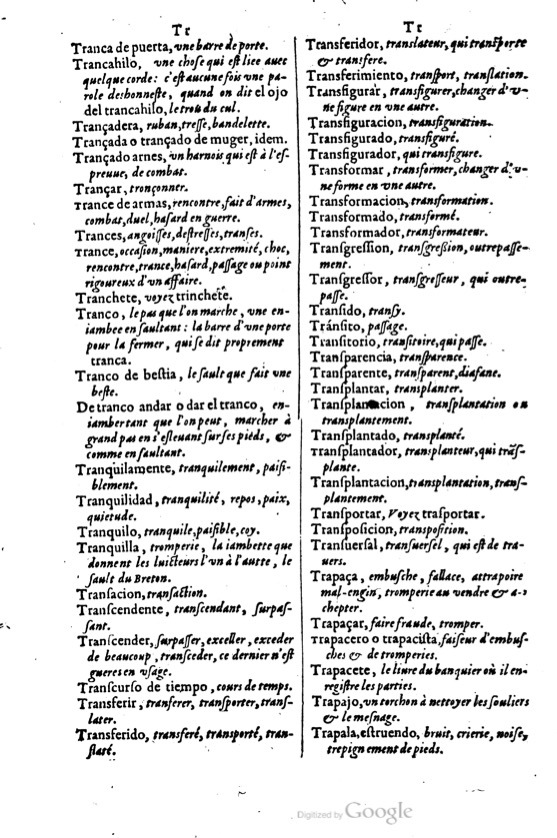 Tr
Tranca de puerta, vne barre de porte.
Trancahilo, vne chose qui est liee auec
quelque corde: c'est aucune fois vne pa-
role deshonneste, quand on dit el ojo
del trancahilo, le trou du cul.
Trançadera, ruban, tresse, bandelette.
Trançada o trançado de muger, idem.
Trançado arnes, vn harnois qui est à l'es-
preuue, de combat.
Trançar, tronçonner.
Trance de armas, rencontre, fait d'armes,
combat, duel, hasard en guerre.
Trances, angoisses, destresses, transes.
Trance, occasion, maniere, extremité, choc,
rencontre, trance, hasard, passage ou point
rigoureux d'un affaire.
Tranchete, voyez trinchete.
Tranco, le pas que l'on marche, vne en-
iambee en saultant: la barre d'vne porte
pour la fermer, qui se dit proprement
tranca.
Tranco de bestia, le sault que fait vne
beste.
De tranco andar o dar el tranco, en-
iambertant que l'on peut, marcher à
grand pas en s'esleuant sur ses pieds, &
comme en saultant.
Tranquilamente, tranquilement, paisi-
blement.
Tranquilidad, tranquilité, repos, paix,
quietude.
Tranquilo, tranquile, paisible, coy.
Tranquilla, tromperie, la iambette que
donnent les luicteurs l'vn à l'autte, le
sault du Breton.
Transacion, transaction.
Transcendente, transcendant, surpas-
sant.
Transcender, surpasser, exceller, exceder
de beaucoup, transceder, ce dernier n'est
gueres en vsage.
Transcurso de tiempo, cours de temps.
Transferir, tranferer, transporter, trans-
later.
Transferido, transferé, transporté, tran-
slaté.
Tr
Transferidor, translateur, qui transporte
& transfere.
Transferimiento, transport, translation.
Transfigurar, transfigurer, changer d'v-
ne figure en vne autre.
Transfiguracion, transfiguration.
Transfigurado, transfiguré.
Transfigurador, qui transfigure.
Transformar, transformer, changer d'v-
ne forme en vne autre.
Transformacion, transformation.
Transformado, transformé.
Transformador, transformateur.
Transgression, transgression, outrepasse-
ment.
Transgressor, transgresseur, qui outre-
passe.
Transido, transy.
Tránsito, passage.
Transitorio, transitoire, qui passe.
Transparencia, transparence.
Transparente, transparent, diafane.
Transplantar, transplanter.
Transplantacion, transplantation ou
transplantement.
Transplantado, transplanté.
Transplantador, transplanteur, qui trãs-
plante.
Transplantacion, transplantation, trans-
plantement.
Transportar, Voyez trasportar.
Transposicion, transposition.
Transuersal, transuersel, qui est de tra-
uers.
Trapaça, embusche, fallace, attrapoire
mal-engin, tromperie au vendre & a-
chepter.
Trapaçar, faire fraude, tromper.
Trapacero o trapacista, faiseur d'embus-
ches & de tromperies.
Trapacete, le liure du banquier où il en-
registre les parties.
Trapajo, vn torchon à nettoyer les souliers
& le mesnage.
Trapala, estruendo, bruit, crierie, noise,
trepignement de pieds.
Digitized by Google